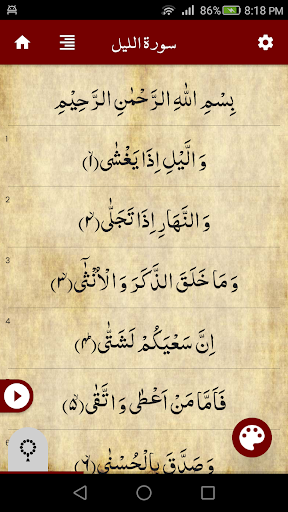 86% 8:18 PM
سورة الليل
بِسْمِ اللهِ الرَّحْمٰنِ الرَّحِيْمِ
1
وَالَّيْلِ اِذَا يَغْشٰى ﴿۱﴾
2
وَالنَّهَارِ اِذَا تَجَلّٰى ﴿۲﴾
3
وَمَا خَلَقَ الذَّكَرَ وَالْاُنْثٰۤى ﴿۳﴾
4
اِنَّ سَعْيَكُمْ لَشَتّٰى ﴿۴﴾
فَاَمَّا مَنْ اَعْطٰى وَاتَّقٰى ﴿۵﴾
وَصَدَّقَ بِالْحُسْنٰى ﴿۶﴾